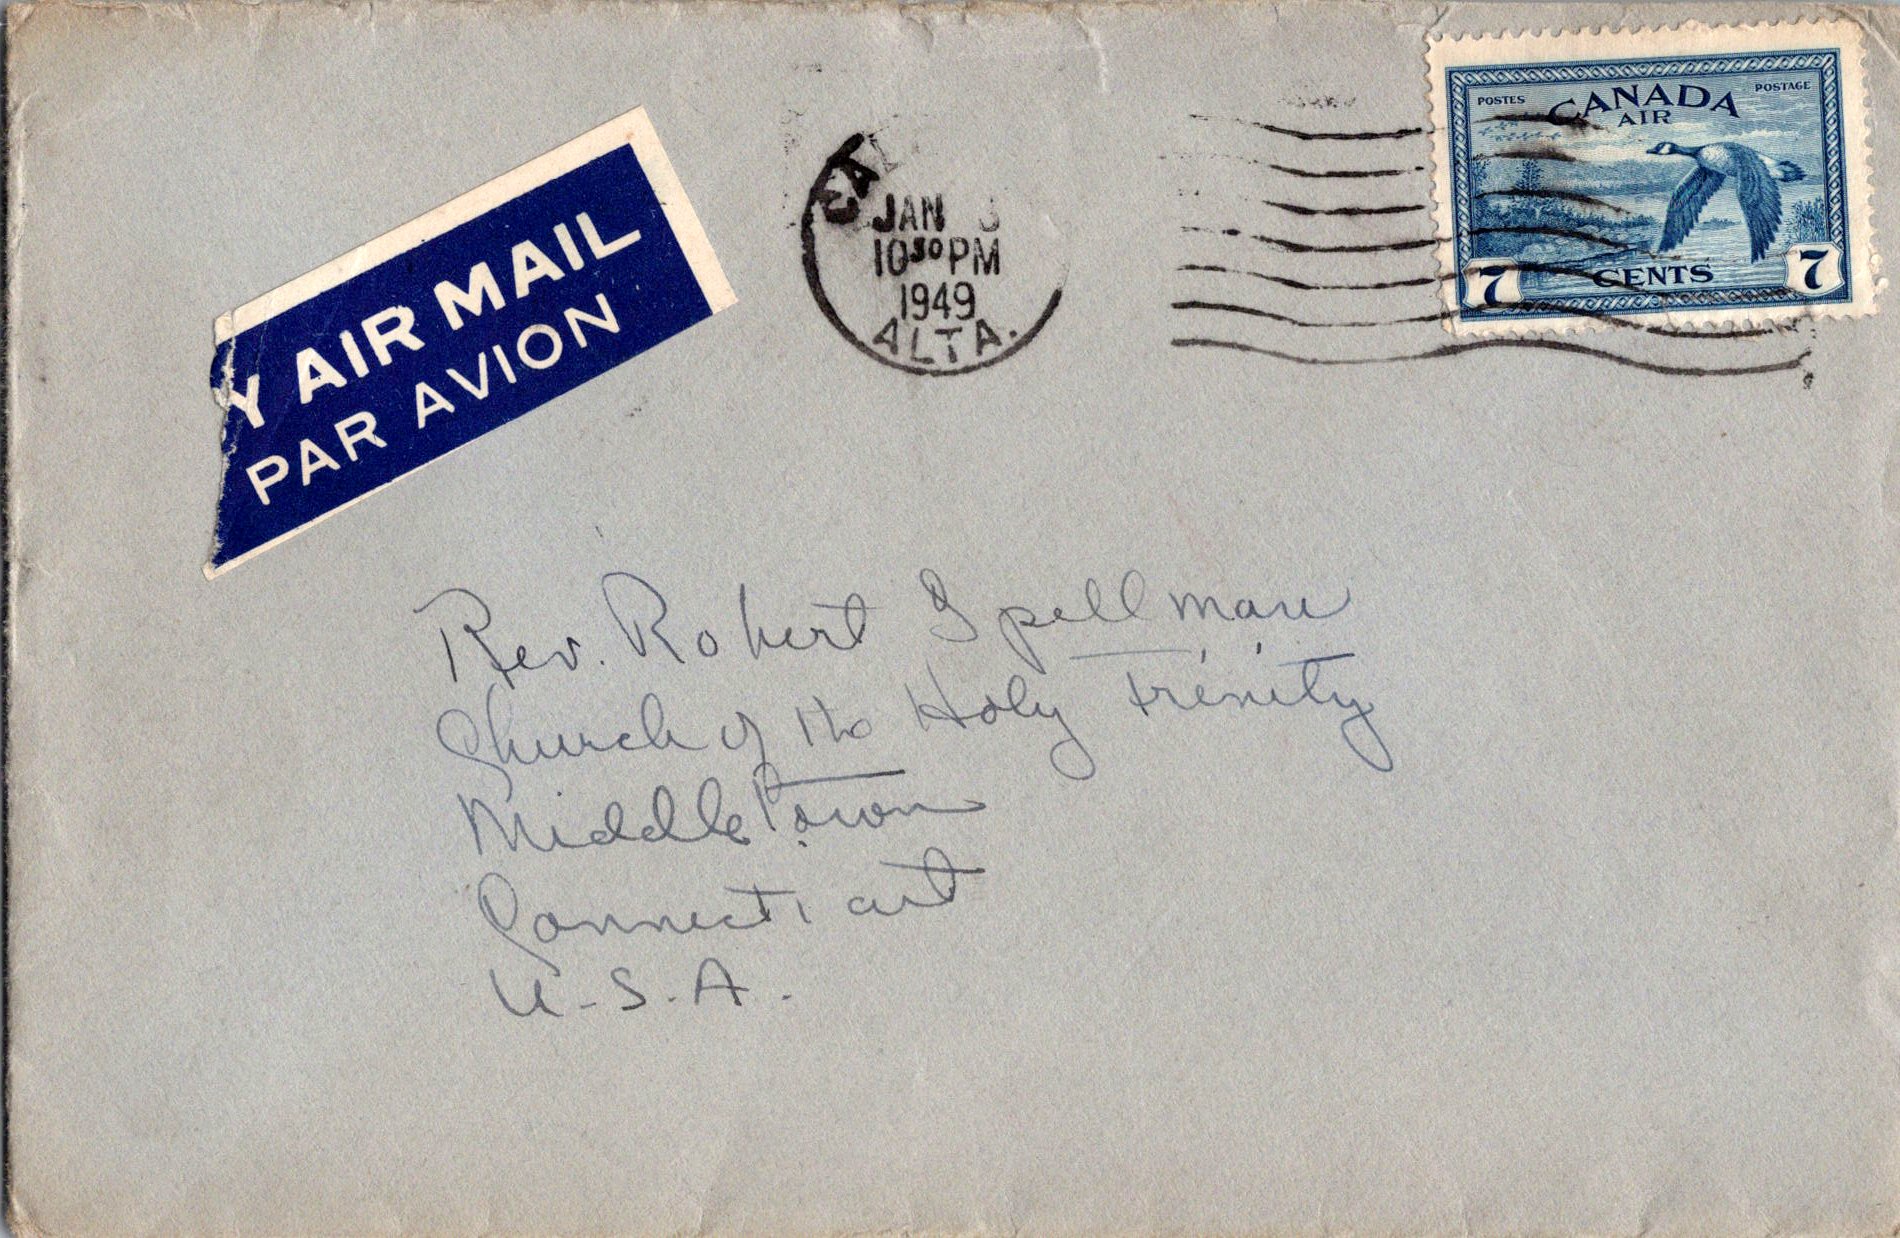 Y AIR MAIL
PAR AVION
CAL
JAN 3
10 30 PM
1949
ALTA.
POSTES CANADA POSTAGE
AIR
7 CENTS 7
Rev. Robert Spellman
Church of the Holy Trinity
Middletown
Connecticut
U.S.A.